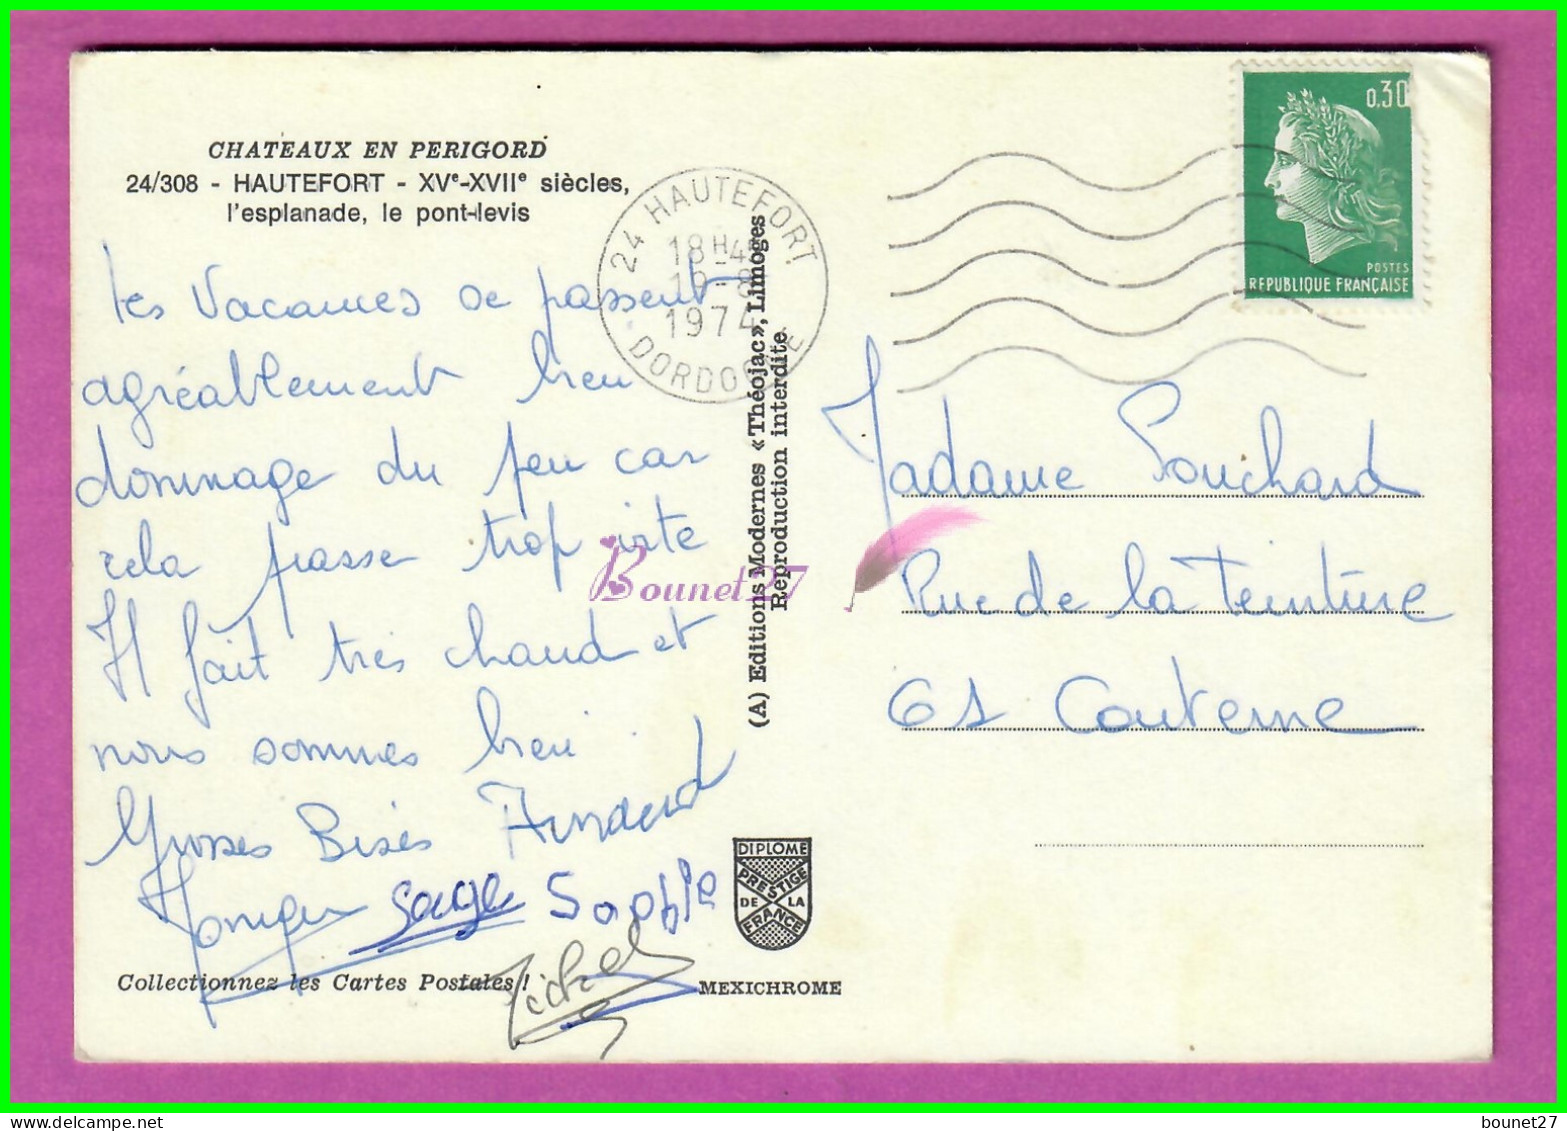 CHATEAUX EN PERIGORD
24/308 - HAUTEFORT - XVe-XVIIe siècles,
l'esplanade, le pont-levis
Les Vacances se passent
agréablement bien
dommage du peu car
cela passe trop vite
Il fait très chaud et
nous sommes bien
Grosses Bises Arnaud
Serge Sophie
Michel
Collectionnez les Cartes Postales !
24 HAUTEFORT
18H-45
1974
DORDOGNE
(A) Editions Modernes « Théojac », Limoges
Reproduction interdite
Bounet27
DIPLOME
PRESTIGE
DE LA
FRANCE
MEXICHROME
0,30
POSTES
REPUBLIQUE FRANÇAISE
Madame Pouchard
Rue de la Teinture
61 Couterne
bounet27